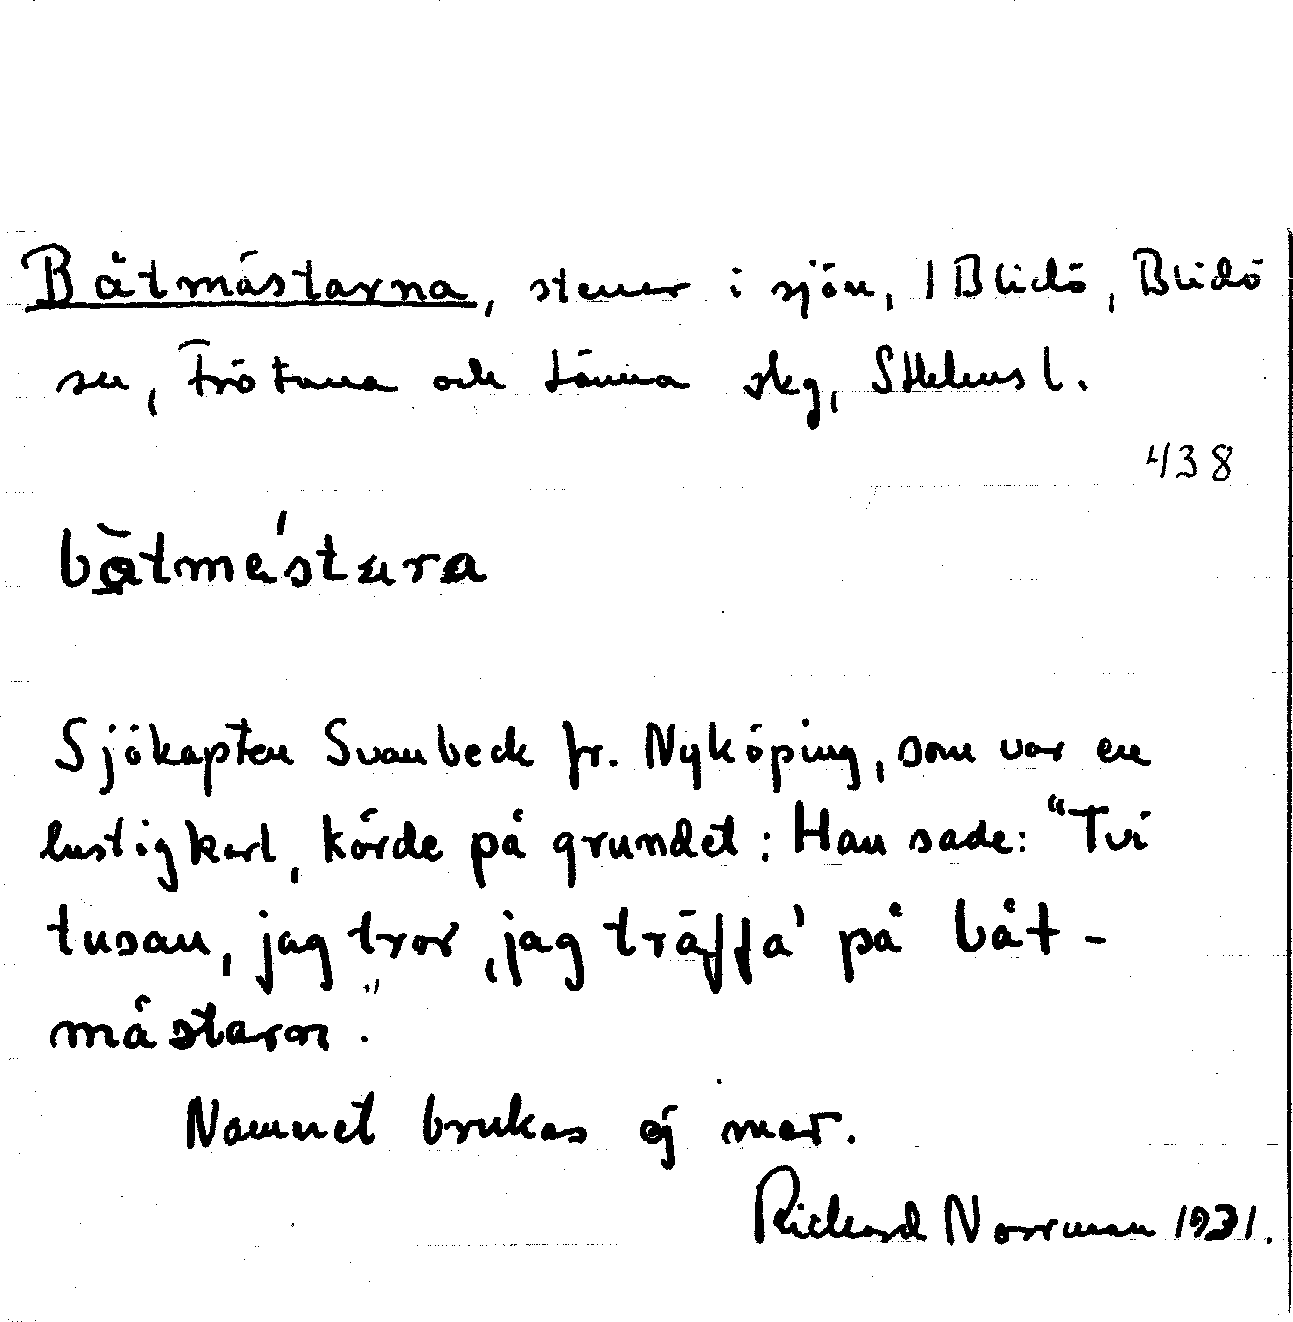 Båtmästarna, stenar i sjön, 1 Blidö, Blidö
sn, Frötuna och Länna skg, Sthlms l.
438
båtmästara
Sjökapten Svanbeck fr. Nyköping, som var en
lustigkarl, körde på grundet: Han sade: "Tvi
tusan, jag tror, jag träffa' på båt-
mästarn."
Namnet brukas ej mer.
Rickard Norrman 1931.